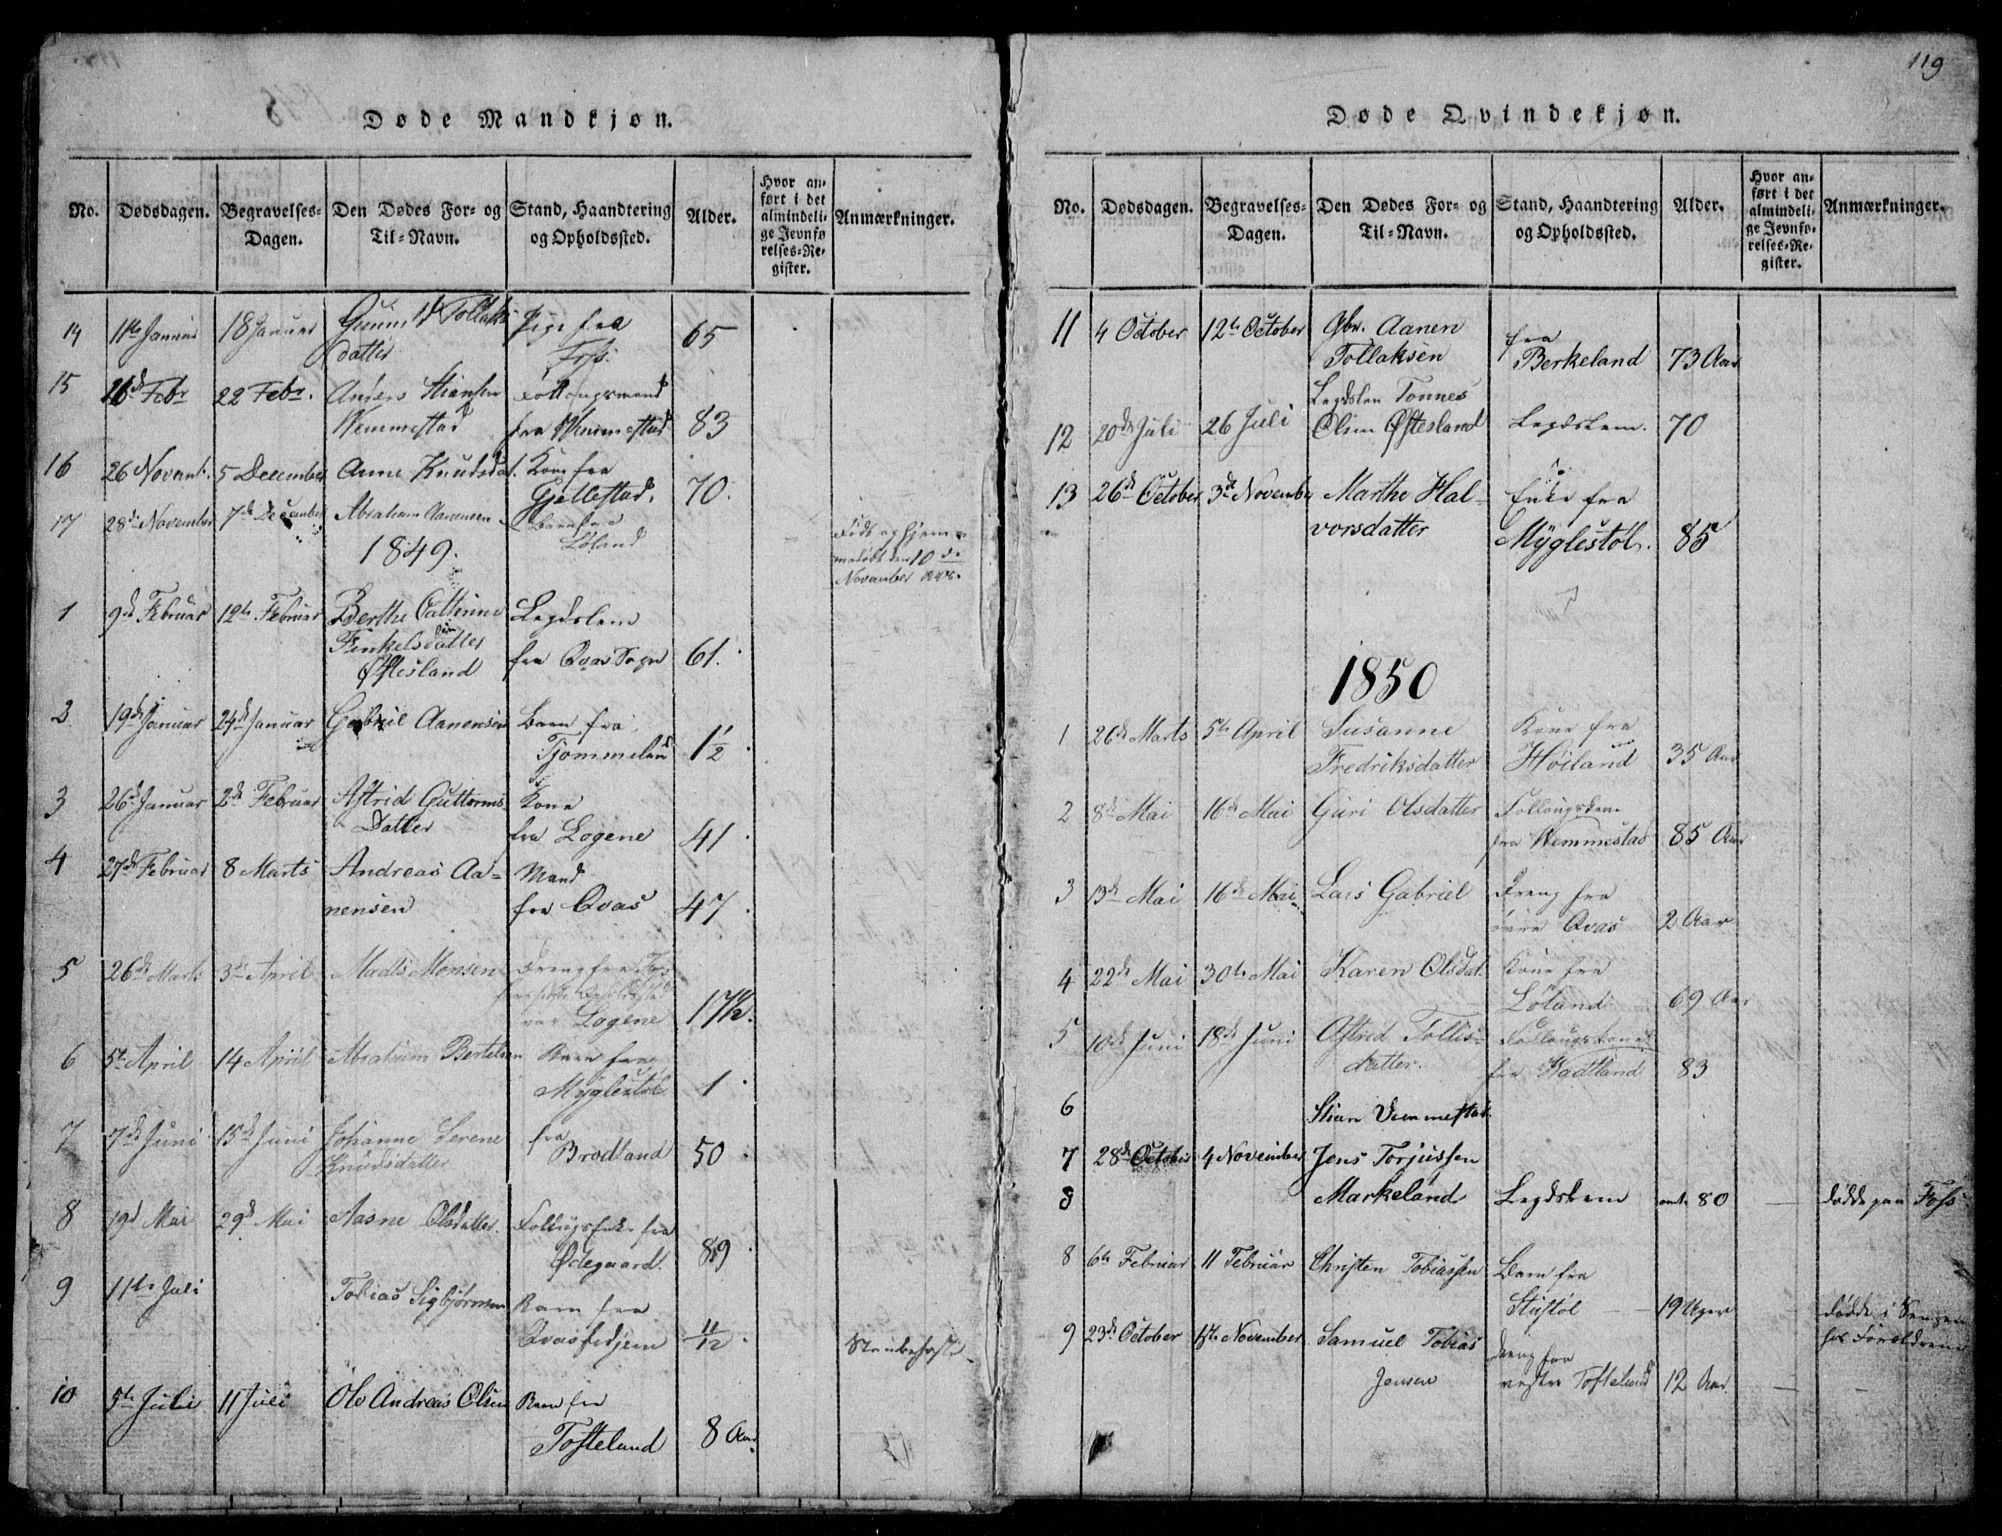 119
Døde Mandkjøn.
No. Dødsdagen. Begravelses-Dagen. Den Dødes For- og Til-Navn. Stand, Haandtering og Opholdssted. Alder. Hvor anført i det almindelige Jevnførelses-Register. Anmærkninger.
14 11te Januar 18 Januar Gunild Tollaks Pige fra
datter Foss. 65
15 16d Febr 22 Febr. Anders Stiansen
Wemmestad fra Wemmestad 83
16 26 Novemb. 5 December Anne Knudsdat. Kone fra
Gjellestad. 70.
17 28de November 7de December Abraham Aanensen Barn fra
Løland
1849. Født og hjem-
November
1 9d Februar 12te Februar Berthe Cathrine Legdslem
Finkelsdatter fra Qvas Sogn 61.
Øftesland
2 19de Januar 24de Januar Gabriel Aanensen Barn fra
Tjommeland 1½
3 26de Januar 2de Februar Astrid Guttorms Kone
Datter fra Logene 41
4 27de Februar 8 Marts Andreas Aa- Mand
nensen fra Qvas 47
5 26de Marts 3de April Madts Monsen Dreng fra
var Logene 17½
6 5te April 14 April Abraham Bertelsen Barn fra
Myglestøl 1
7 7de Juni 15de Juni Johanne Serene fra
Knudsdatter Brodland 50
8 19d Mai 29d Mai Aasne Olsdatter. fra
Ødegaard. 89
9 11te Juli Tobias Sigbjørnsen Barn fra
11/12
10 5te Juli 11 Juli Ole Andreas Olsen Barn fra
Tofteland 8 Aar
Døde Qvindekjøn.
No. Dødsdagen. Begravelses-Dagen. Den Dødes For- og Til-Navn. Stand, Haandtering og Opholdssted. Alder. Hvor anført i det almindelige Jevnførelses-Register. Anmærkninger.
11 4 October 12te October Gbr. Aanen fra
Tollaksen Berkeland 73 Aar
Legdslem Tonnes
12 20de Juli 26 Juli Olsen Øftesland Legdslem. 70
13 26de October 3de November Marthe Hal- Enke fra
vorsdatter Myglestøl. 85
1850
1 26de Marts 5te April Susanne Kone fra
Fredriksdatter Høiland 35 Aar
2 8de Mai 16de Mai Guri Olsdatter
fra Wemmestad 85 Aar
3 13de Mai 16de Mai Lars Gabriel Dreng fra
Qvas 2 Aar
4 22de Mai 30te Mai Karen Olsdat. Kone fra
Løland 69 Aar
5 10de Juni 18de Juni Astrid Tollis-
datter. fra 83
6 Stian Vemmestad
7 28de October 4 November Jens Torjussen
8 Markeland Legdslem omt. 80 døde paa Foss
8 6te Februar 11 Februar Christen Tobiassen Barn fra
19 Uger døde i Sengen
hos Forældrene
9 23de October 1ste November Samuel Tobias Dreng fra
Jensen vestre Tofteland 12 Aar